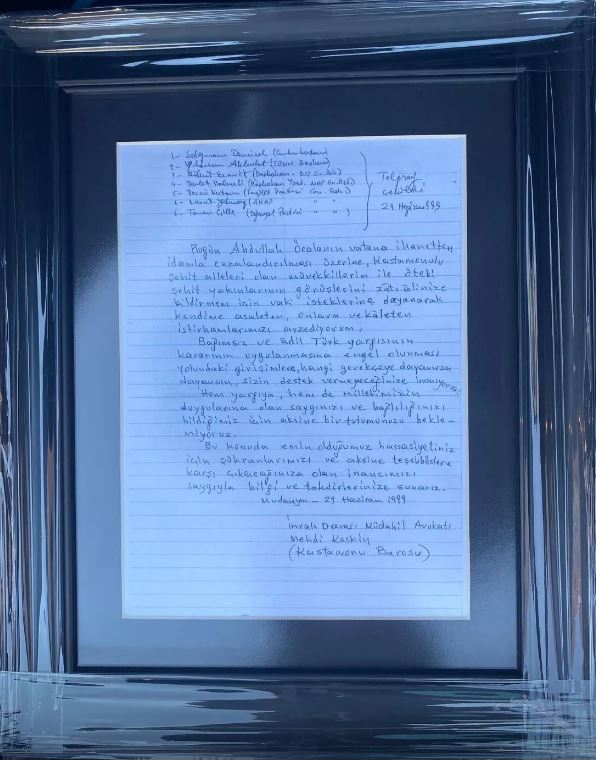 1- Süleyman Demirel (Cumhurbaşkanı)
2- Yıldırım Akbulut (TBMM Başkanı)
3- Bülent Ecevit (Başbakan - DSP Gn. Bşk)
4- Devlet Bahçeli (Başbakan Yard. MHP Gn. Bşk)
5- Recai Kutan (Fazilet Partisi Gn. Bşk.)
6- Mesut Yılmaz (ANAP " "
6- Tansu Çiller (Doğruyol Partisi " " )
Telgraf
çekildi
29 Haziran 999
Bugün Abdullah Öcalanın vatana ihanetten
idamla cezalandırılması üzerine, Kastamonulu
şehit aileleri olan müvekkillerim ile öteki
şehit yakınlarının görüşlerini zâtıâlinize
bildirmem için vaki isteklerine dayanarak
kendime asaleten, onlara vekâleten
istirhamlarımızı arzediyorum.
Bağımsız ve âdil Türk yargısının
kararının uygulanmasına engel olunması
yolundaki girişimlere, hangi gerekçeye dayanırsa
dayansın, sizin destek vermeyeceğinize inanıyoruz.
Hem yargıya, hem de milletimizin
duygularına olan saygınızı ve bağlılığınızı
bildiğimiz için aksine bir tutumunuzu bekle-
miyoruz.
Bu konuda emin olduğumuz hassasiyetiniz
için şükranlarımızı ve aksine teşebbüslere
karşı çıkacağınıza olan inancımızı
saygıyla bilgi ve takdirlerinize sunarız.
Mudanya - 29 Haziran 1999
İmralı Davası Müdahil Avukatı
Mehdi Keskin
(Kastamonu Barosu)